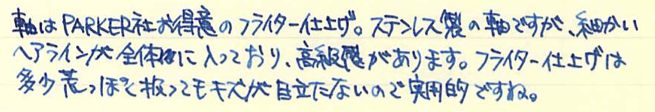 軸はPARKER社お得意のフライター仕上げ。ステンレス製の軸ですが、細かい
ヘアラインが全体に入っており、高級感があります。フライター仕上げは
多少荒っぽく扱ってもキズが目立たないので実用的ですね。